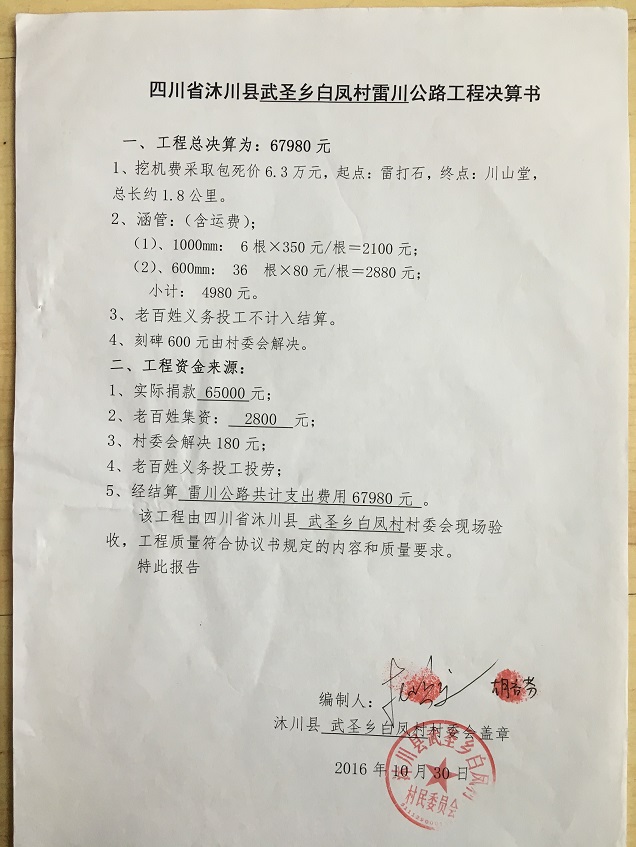 四川省沐川县武圣乡白凤村雷川公路工程决算书
一、工程总决算为：67980 元
1、挖机费采取包死价 6.3 万元，起点：雷打石，终点：川山堂，
总长约 1.8 公里。
2、涵管：（含运费）；
（1）、1000mm： 6 根×350 元/根＝2100 元；
（2）、600mm： 36 根×80 元/根＝2880 元；
小计： 4980 元。
3、老百姓义务投工不计入结算。
4、刻碑 600 元由村委会解决。
二、工程资金来源：
1、实际捐款 65000 元；
2、老百姓集资： 2800 元；
3、村委会解决 180 元；
4、老百姓义务投工投劳；
5、经结算 雷川公路共计支出费用 67980 元 。
该工程由四川省沐川县 武圣乡白凤村村委会现场验
收，工程质量符合协议书规定的内容和质量要求。
特此报告
编制人：
沐川县 武圣乡白凤村村委会盖章
2016 年 10 月 30 日
沐川县武圣乡白凤村
村民委员会